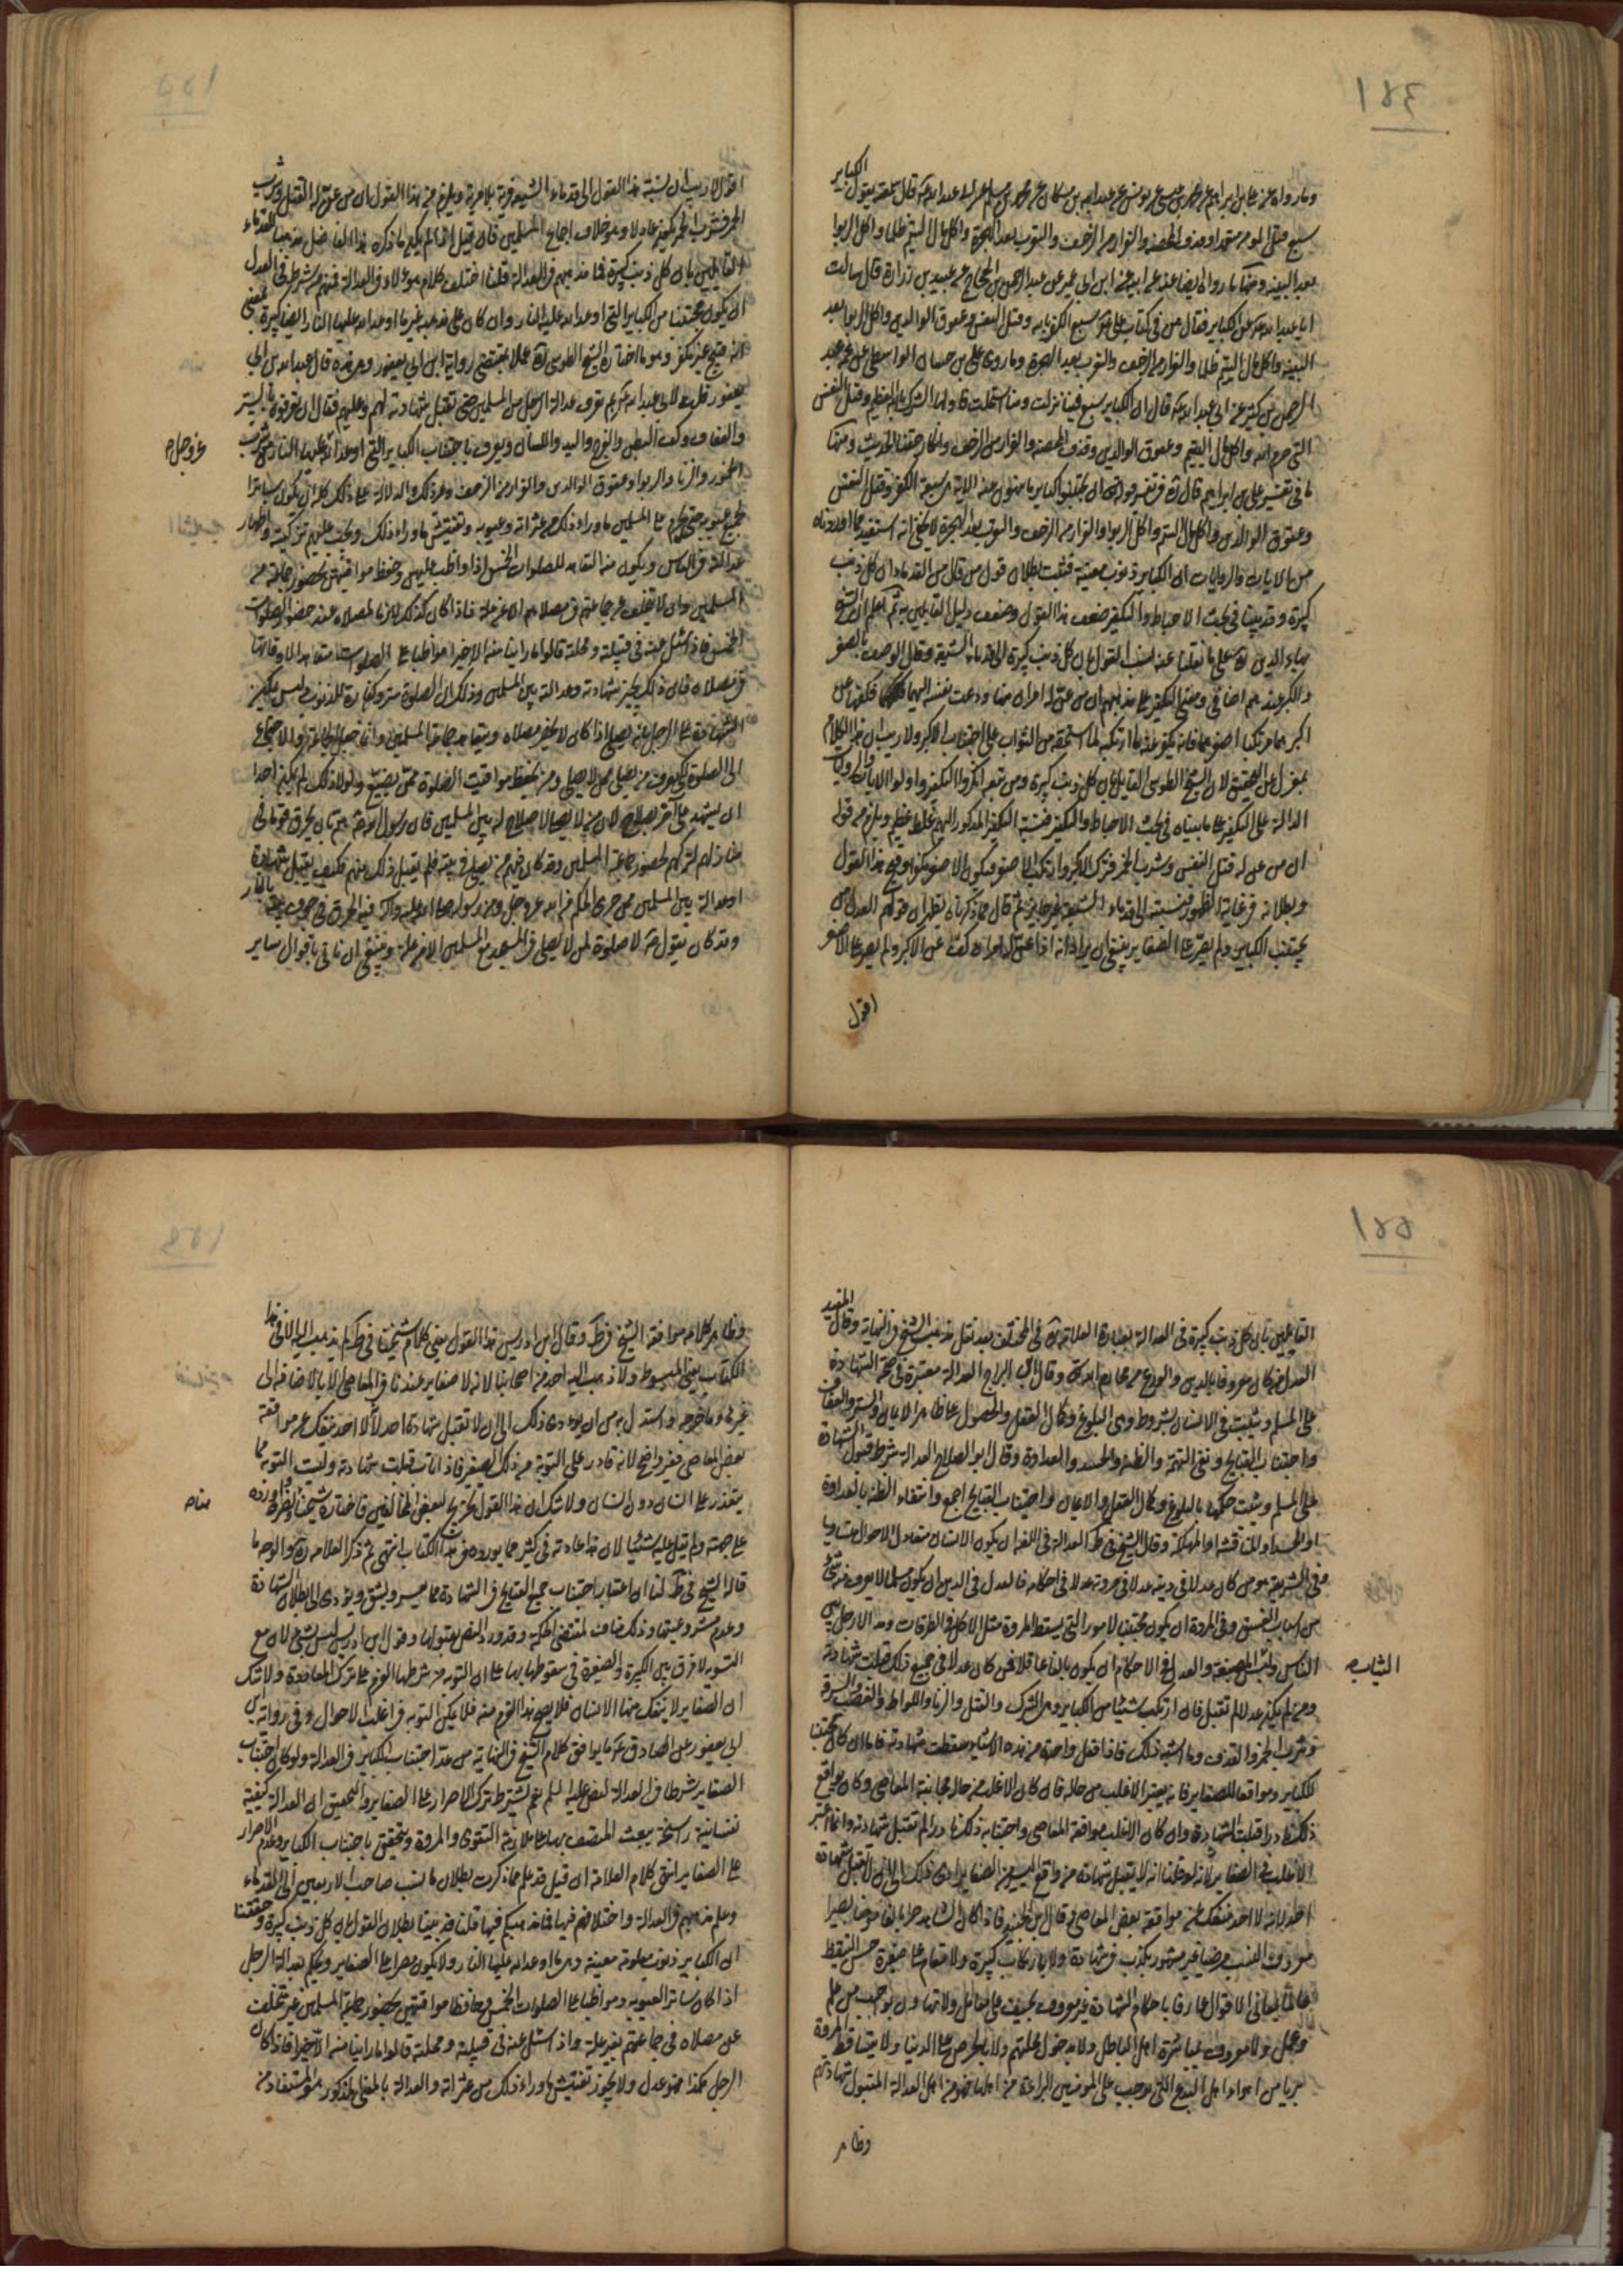 وما رواه عن علي بن ابراهيم عن محمد بن عيسى عن يونس عن عبد الله بن مسكان عن محمد بن مسلم عن ابي عبد الله عم قال سمعته يقول الكباير
سبع قتل المؤمن متعمدا وقذف المحصنة والفرار من الزحف والتعرب بعد الهجرة واكل مال اليتيم ظلما واكل الربوا
بعد البينة ومنها ما رواه ايضا عنه عن ابيه عن ابن ابي عمير عن عبد الرحمن بن الحجاج عن عبيد بن زرارة قال سالت
ابا عبد الله عم عن الكباير فقال هن في كتاب علي عم سبع الكفر بالله وقتل النفس وعقوق الوالدين واكل الربوا بعد
البينة واكل مال اليتيم ظلما والفرار من الزحف والتعرب بعد الهجرة وما روى علي بن حسان الواسطي عن عمه عبد
الرحمن بن كثير عن ابي عبد الله عم قال ان الكباير سبع فينا نزلت ومنا استحلت فاولها الشرك بالله العظيم وقتل النفس
التي حرم الله واكل مال اليتيم وعقوق الوالدين وقذف المحصنة والفرار من الزحف وانكار حقنا الحديث ومنها
ما في تفسير علي بن ابراهيم قال
وعقوق الوالدين واكل مال اليتيم واكل الربوا والفرار من الزحف والتعرب بعد الهجرة لا يخفى انه استفيد مما اوردناه
من الايات والروايات ان الكباير ذنوب معينة فثبت بطلان قول من قال من القدماء ان كل ذنب
كبيرة وقد بينا في بحث الاحباط والتكفير ضعف هذا القول وضعف دليل القايلين به ثم اعلم ان الشيخ
بهاء الدين ره على ما نقلنا عنه نسب القول بان كل ذنب كبيرة الى قدماء الشيعة وقال الوصف بالصغر
والكبر عندهم اضافي ومعنى التكفير على مذهبهم ان من عن له امران منها ودعت نفسه اليهما فكفها عن
اكبرهما مرتكبا اصغرهما فانه يكفر عنه ما ارتكبه لما استحقه من الثواب على اجتناب الاكبر ولا ريب ان هذا الكلام
بمعزل عن التحقيق لان الشيخ الطوسي القايل بان كل ذنب كبيرة ومن تبعه انكروا التكفير واولوا الايات والروايات
الدالة على التكفير على ما بيناه في بحث الاحباط والتكفير فنسبة التكفير المذكور اليهم غلط عظيم ويلزم من قوله
ان من عن له قتل النفس وشرب الخمر فترك الاكبر وارتكب الاصغر فيكون الاصغر مكفرا وقبح هذا القول
وبطلانه في غاية الظهور فنسبته الى قدماء الشيعة غير جايز ثم قال مما ذكرناه يظهر ان قولهم العدل من
يجتنب الكباير ولم يصر على الصغاير ينبغي ان يراد انه اذا عن له امران كف عن الاكبر ولم يصر على الاصغر
اقول
اقول لا ريب ان نسبة هذا القول الى قدماء الشيعة فرية بلا مرية ويلزم من هذا القول ان من عن له القتل وشرب
الخمر فشرب الخمر يكون عادلا وهو خلاف اجماع المسلمين فان قيل اذا لم يكن ما ذكره هذا الفاضل مذهبا للقدماء
القايلين بان كل ذنب كبيرة فما مذهبهم في العدالة قلنا اختلف كلام هؤلاء في العدالة فمنهم من شرط في العدل
ان يكون مجتنبا من الكباير التي اوعد الله عليها النار وان كان على مذهبه غير ما اوعد الله عليها النار ايضا كبيرة بمعنى
انه قبيح غير مكفر وهو ما اختاره الشيخ الطوسي ره عملا بمقتضى رواية ابن ابي يعفور وهي هذه قال عبد الله بن ابي
يعفور قلت لابي عبد الله عم بم تعرف عدالة الرجل من المسلمين حتى تقبل شهادته لهم وعليهم فقال ان يعرفوه بالستر
والعفاف وكف البطن والفرج واليد واللسان ويعرف باجتناب الكباير التي اوعد الله عليها النار من شرب
عز وجل صح
الخمور والزنا والربوا وعقوق الوالدين والفرار من الزحف وغير ذلك والدلالة على ذلك كله ان يكون ساترا
لجميع عيوبه حتى يحرم على المسلمين ما وراء ذلك من عثراته وعيوبه وتفتيش ما وراء ذلك ويجب عليهم تزكيته واظهار
عدالته في الناس ويكون منه التعاهد للصلوات الخمس اذا واظب عليهن وحفظ مواقيتهن بحضور جماعة من
المسلمين وان لا يتخلف عن جماعتهم في مصلاهم الا من علة فاذا كان كذلك لازما لمصلاه عند حضور الصلوات
الخمس فاذا سئل عنه في قبيلته ومحلته قالوا ما راينا منه الا خيرا مواظبا على الصلوات متعاهدا لاوقاتها
في مصلاه فان ذلك يجيز شهادته وعدالته بين المسلمين وذلك ان الصلوة ستر وكفارة للذنوب وليس يمكن
الشهادة على الرجل بانه يصلي اذا كان لا يحضر مصلاه ويتعاهد جماعة المسلمين وانما جعل الجماعة والاجتماع
الى الصلوة لكي يعرف من يصلي ممن لا يصلي ومن يحفظ مواقيت الصلوة ممن يضيع ولولا ذلك لم يمكن احدا
ان يشهد على اخر بصلاح لان من لا يصلي لا صلاح له بين المسلمين فان رسول الله ص هم بان يحرق قوما في
منازلهم لتركهم لحضور جماعة المسلمين وقد كان فيهم من يصلي في بيته فلم يقبل ذلك منهم فكيف يقبل شهادة
او عدالة بين المسلمين ممن جرى الحكم من الله عز وجل ومن رسوله صلى الله عليه واله فيه الحرق في جوف بيته بالنار
وقد كان يقول ص لا صلوة لمن لا يصلي في المسجد مع المسلمين الا من علة وينبغي ان ناتي باقوال ساير
القايلين بان كل ذنب كبيرة في العدالة بعبارة العلامة ره في المختلف بعد نقل مذهب الشيخ في النهاية وقال المفيد
العدل من كان معروفا بالدين والورع عن محارم الله تعالى وقال ابن البراج العدالة معتبرة في صحة الشهادة
على المسلم ويثبت في الانسان بشروط وهي البلوغ وكمال العقل والحصول على ظاهر الايمان والستر والعفاف
واجتناب القبايح ونفي التهمة والظنة والحسد والعداوة وقال ابو الصلاح العدالة شرط قبول الشهادة
على المسلم ويثبت حكمها بالبلوغ وكمال العقل والايمان واجتناب القبايح اجمع وانتفاء الظنة بالعداوة
او الحسد او المنافسة او المملكة وقال الشيخ في ط العدالة في اللغة ان يكون الانسان متعادل الاحوال متساويا
وفي الشريعة هو من كان عدلا في دينه عدلا في مروته عدلا في احكامه فالعدل في الدين ان يكون مسلما لا يعرف منه شئ
من اسباب الفسق وفي المروة ان يكون مجتنبا لامور التي يسقط المروة مثل الاكل في الطرقات ومد الارجل بين
الناس ولبس المصبغة والعدل في الاحكام ان يكون بالغا عاقلا فمن كان عدلا في جميع ذلك قبلت شهادته
الثياب صح
ومن لم يكن عدلا لم تقبل فان ارتكب شيئا من الكباير وهي الشرك والقتل والزنا واللواط والغصب والسرقة
وشرب الخمر والقذف وما اشبه ذلك فاذا فعل واحدة من هذه الاشياء سقطت شهادته فاما ان كان مجتنبا
للكباير ومواقعا للصغاير فانه يعتبر الاغلب من حاله فان كان الاغلب من حاله مجانبة المعاصي وكان يواقع
ذلك نادرا قبلت الشهادة وان كان الاغلب مواقعة المعاصي واجتنابه ذلك نادرا لم تقبل شهادته وانما اعتبر
الاغلب في الصغاير لانه لو قلنا انه لا يقبل شهادة من واقع اليسير من الصغاير ادى ذلك الى ان لا تقبل شهادة
احد لانه لا احد منفك عن مواقعة بعض المعاصي وقال ابن الجنيد فاذا كان الشاهد حرا بالغا مؤمنا بصيرا
معروف النسب مرضيا غير مشهور بكذب في شهادة ولا بارتكاب كبيرة ولا مقام على صغيرة حسن التيقظ
عالما بمعاني الاقوال عارفا باحكام الشهادة غير معروف بحيف على معامل ولا تهاون بواجب من علم
وعمل ولا معروف بمباشرة اهل الباطل ولا بدخول جملتهم ولا بالحرص على الدنيا ولا بساقط المروة
بريا من اهواء اهل البدع التي يوجب على المؤمنين البراءة من اهلها فهو من اهل العدالة المقبول شهادتهم
وظاهر
وظاهر كلامه موافقة الشيخ في ط وقال ابن ادريس هذا القول يعني كلام شيخنا في ط لم يذهب اليه الا في هذا
الكتاب يعني المبسوط ولا ذهب اليه احد من اصحابنا لانه لا صغاير عندنا في المعاصي الا بالاضافة الى
غيرها وما خرجه واستدل به من ان يؤدي ذلك الى ان لا تقبل شهادة احد لانه لا احد منفك عن مواقعة
بعض المعاصي فغير واضح لانه قادر على التوبة من ذلك الصغير فاذا تاب قبلت شهادته وليست التوبة مما
يتعذر على انسان دون انسان ولا شك ان هذا القول تخريج لبعض المخالفين فاختاره شيخنا ونصره واورده
على جهته ولم يقل عليه شيئا لان هذا عادته في كثير مما يورده في هذا الكتاب انتهى ثم ذكر العلامة ره والوجه ما
قاله الشيخ في ط لنا ان اعتبار اجتناب جميع القبايح في الشهادة مما يعسر ويشق ويؤدي الى بطلان الشهادة
وعدم مشروعيتها وذلك مناف لمقتضى الحكمة وقد ورد النص بقبولها وقول ابن ادريس ليس بشئ لان مع
التوبة لا فرق بين الكبيرة والصغيرة في سقوطهما بها على ان التوبة من شرطها العزم على ترك المعاودة ولا شك
ان الصغاير لا ينفك منها الانسان فلا يصح هذا العزم منه فلا يمكن التوبة في اغلب الاحوال وفي رواية ابن
ابي يعفور عن الصادق عم ما يوافق كلام الشيخ في النهاية من عد اجتناب الكباير في العدالة ولو كان اجتناب
الصغاير شرطا في العدالة لنص عليه السلم نعم يشترط ترك الاصرار على الصغاير والتحقيق ان العدالة كيفية
نفسانية راسخة يبعث المتصف بها على ملازمة التقوى والمروة ويتحقق باجتناب الكباير وعدم الاصرار
على الصغاير انتهى كلام العلامة ان قيل قد علم مما ذكرت بطلان ما نسب صاحب الاربعين الى القدماء
وعلم مذهبهم في العدالة واختلافهم فيها فما مذهبكم فيها قلنا قد بينا بطلان القول بان كل ذنب كبيرة وحققنا
ان الكباير ذنوب معلومة معينة وهي ما اوعد الله عليها النار ولا يكون مصرا على الصغاير ويحكم بعدالة الرجل
اذا كان ساترا لعيوبه ومواظبا على الصلوات الخمس وحافظا مواقيتهن بحضور جماعة المسلمين غير متخلف
عن مصلاه في جماعتهم بغير علة واذا سئل عنه في قبيلته ومحلته قالوا ما راينا منه الا خيرا فاذا كان
الرجل هكذا فهو عدل ولا يجوز تفتيش ما وراء ذلك من عثراته والعدالة بالمعنى المذكور هو المستفاد من